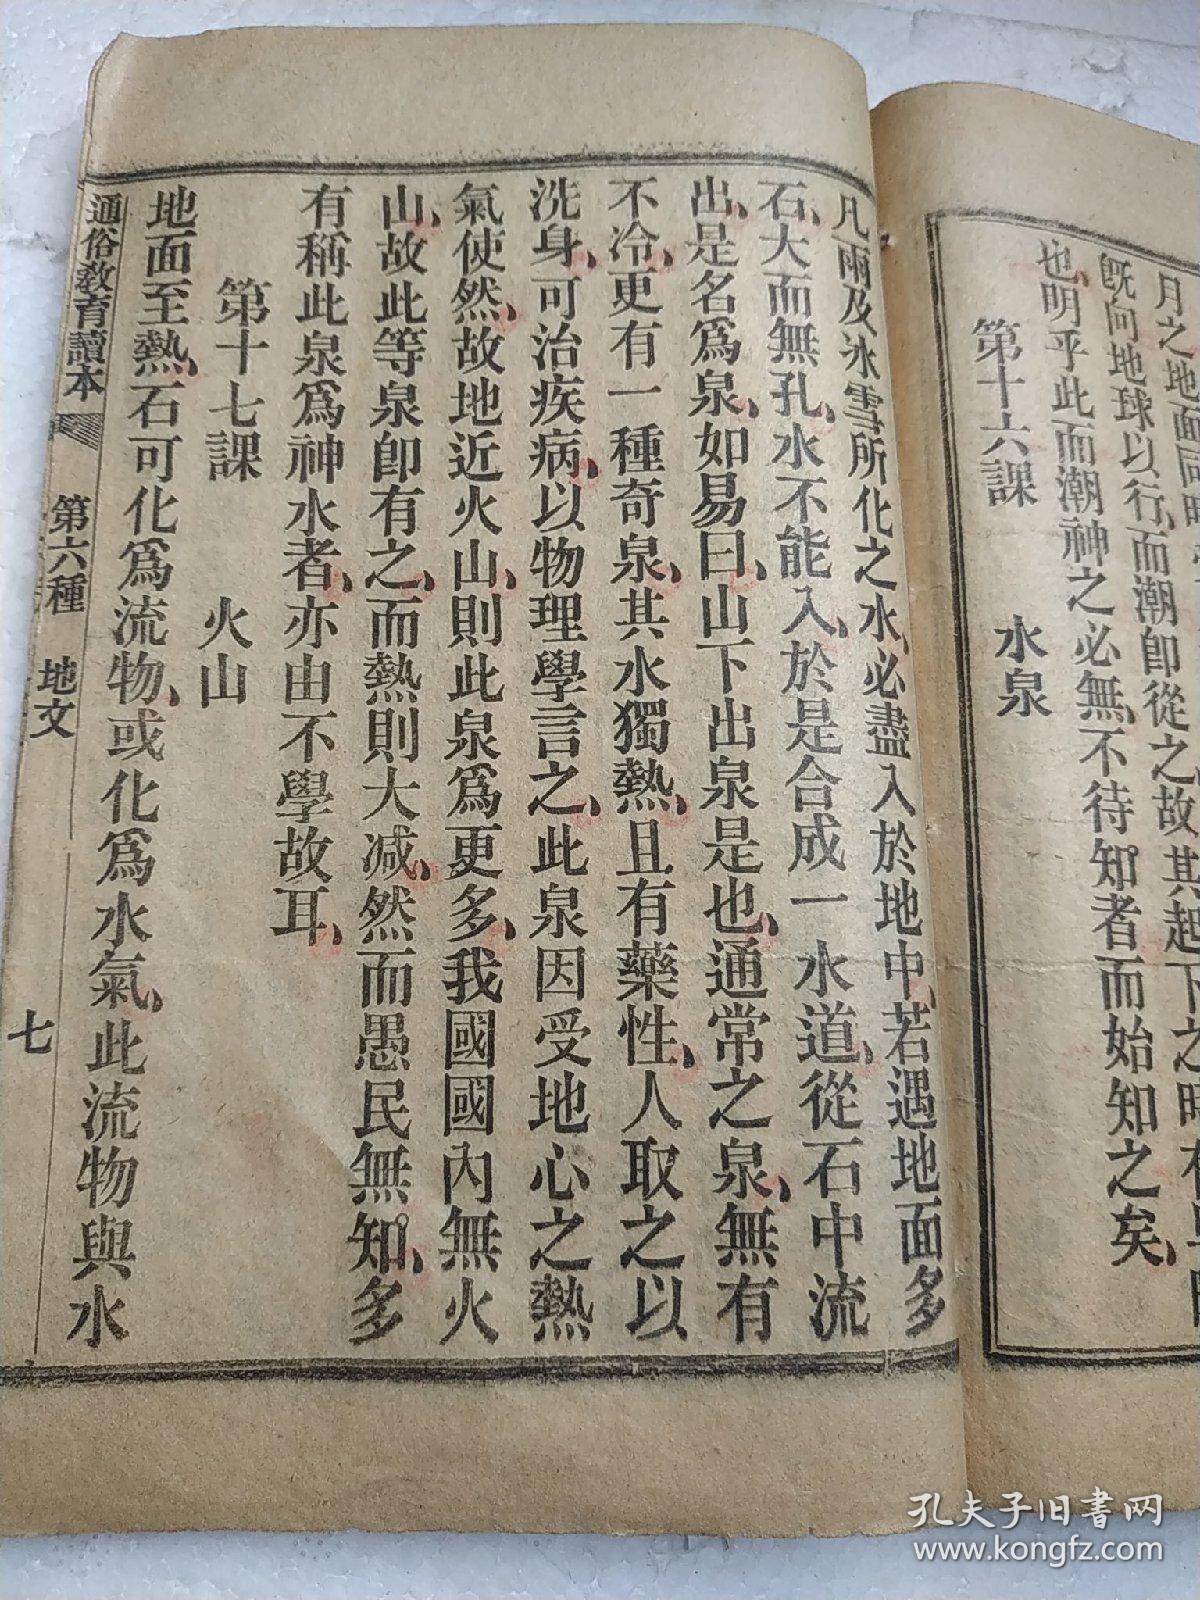 月之地面同時
既向地球以行、而潮卽從之、故其起下之時
也、明乎此而潮神之必無、不待知者而始知之矣、
第十六課　水泉
凡雨及冰雪所化之水、必盡入於地中、若遇地面多
石、大而無孔、水不能入、於是合成一水道、從石中流
出、是名爲泉、如易曰、山下出泉是也、通常之泉、無有
不冷、更有一種奇泉、其水獨熱、且有藥性、人取之以
洗身、可治疾病、以物理學言之、此泉因受地心之熱
氣使然、故地近火山、則此泉爲更多、我國國內無火
山、故此等泉卽有之、而熱則大减、然而愚民無知、多
有稱此泉爲神水者、亦由不學故耳、
第十七課　火山
地面至熱、石可化爲流物、或化爲水氣、此流物與水
通俗教育讀本　第六種　地文　七
孔夫子旧书网
www.kongfz.com